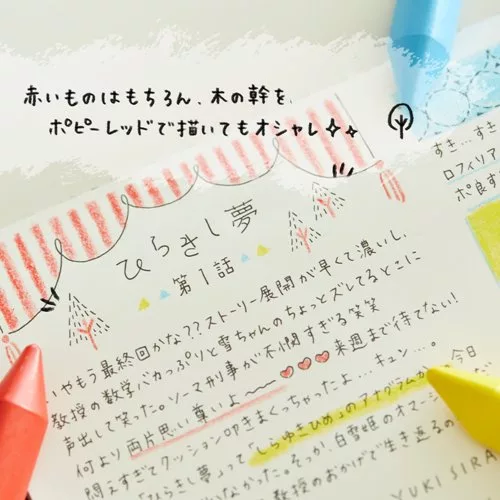 赤いものはもちろん、木の幹を、
ポピーレッドで描いてもオシャレ
ひらきし夢
第1話
いやもう最終回かな??ストーリー展開が早くて濃いし、
教授の数学バカっぷりと雪ちゃんのちょっとズレてるとこに
声出して笑った。ソーマ刑事が不憫すぎる笑笑
何より両片思い尊いよ〜〜♡♡♡来週まで待てない!
悶えすぎてクッション叩きまくっちゃったよ…キュン…。今日
「ひらきし夢」って「しらゆきひめ」のアナグラムか
いなかった。そっか、白雪姫のオマージ
教授のおかげで生き返るの
YUKI SIRA
すき…すき
ロフィリア
ポ良す